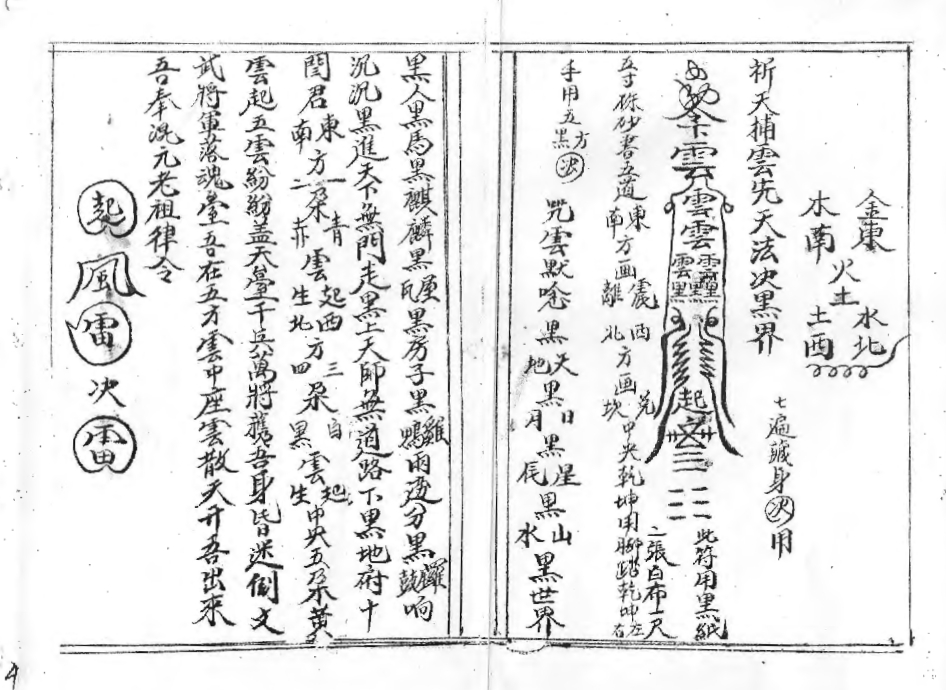 金東
水北
火土
木南
土西
七遍諕身決用
祈天捕雲先天法决黑界
雲
雲雲
雲
起
三
此符用黑紙
二張白布一尺
五寸硃砂書五道東南方画震離西北方画兑坎中央乾坤用脚踏乾坤左右
手用五方黑決
咒雲默唸黑天地黑日月黑星辰黑山水黑世界
黑人黑馬黑麒麟黑房子黑鷄鴨雨边分黑鑼鼓响
沉沉黑進天下無門走黑上天師無道路下黑地府十
閻君東方一朵青雲起南方二朵赤雲生西方三朵白雲起北方四朵黑雲生中央五朵黄
雲起五雲紛紛盖天臺千兵萬將携吾身皆迷倒文
武將軍落魂臺吾在五方雲中座雲散天开吾出來
吾奉混元老祖律令
起
風
雷
决
雷
4